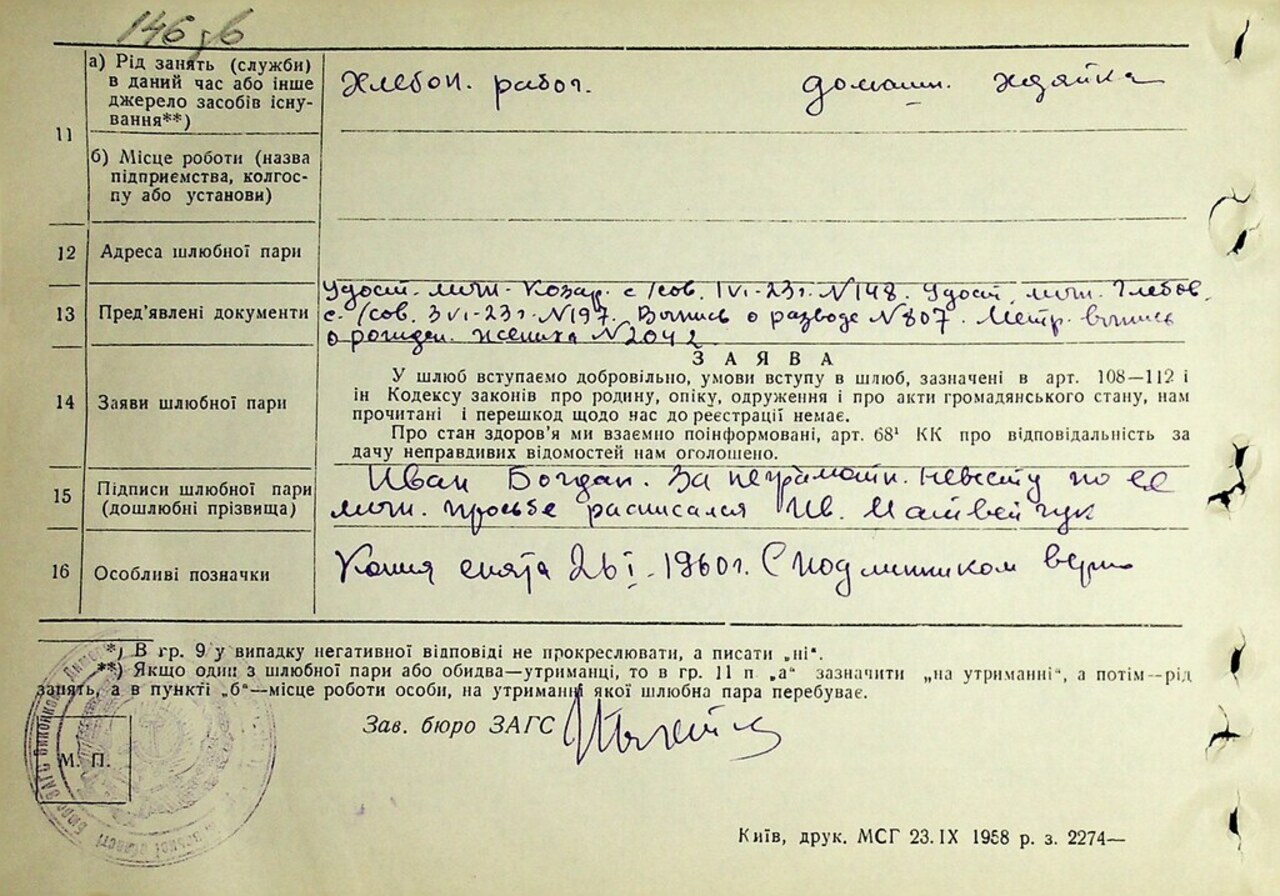 146 зв
а) Рід занять (служби)
в даний час або інше
джерело засобів існу-
вання**)
Хлебоп. работ.
домашн. хозяйка
11
б) Місце роботи (назва
підприємства, колгос-
пу або установи)
12
Адреса шлюбної пари
13
Пред’явлені документи
Удост. личн. Козар. с/сов. 1 VI-23 г. №148. Удост. личн. Глебов.
с./сов. 3 VI-23 г. №197. Выпись о разводе №807. Метр. выпись
о рожден. жениха №2042
14
Заяви шлюбної пари
ЗАЯВА
У шлюб вступаємо добровільно, умови вступу в шлюб, зазначені в арт. 108—112 і
ін Кодексу законів про родину, опіку, одруження і про акти громадянського стану, нам
прочитані і перешкод щодо нас до реєстрації немає.
Про стан здоров’я ми взаємно поінформовані, арт. 68¹ КК про відповідальність за
дачу неправдивих відомостей нам оголошено.
15
Підписи шлюбної пари
(дошлюбні прізвища)
Иван Богдан. За неграмотн. невесту по ее
личн. просьбе расписался Ив. Матвейчук
16
Особливі позначки
Копия снята 26 I. 1960 г. С подлинником верно
*) В гр. 9 у випадку негативної відповіді не прокреслювати, а писати „ні“.
**) Якщо один з шлюбної пари або обидва—утриманці, то в гр. 11 п „а“ зазначити „на утриманні“, а потім—рід
занять, а в пункті „б“—місце роботи особи, на утриманні якої шлюбна пара перебуває.
Зав. бюро ЗАГС
М. П.
Київ, друк. МСГ 23.IX 1958 р. з. 2274—